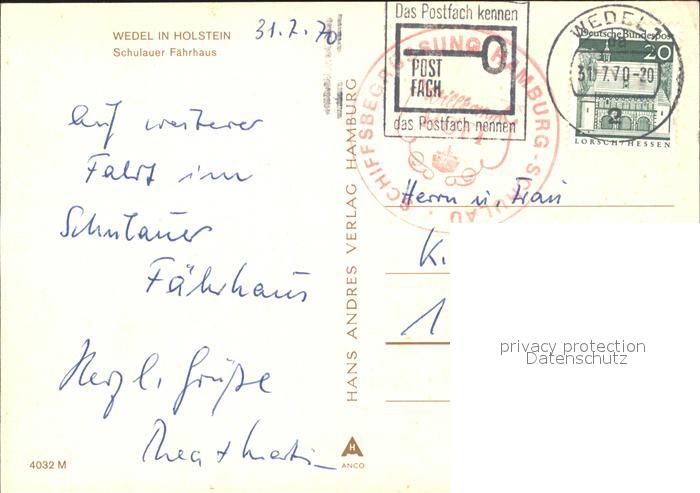 WEDEL IN HOLSTEIN
Schulauer Fährhaus
31.7.70
Auf weiterer
Fahrt im
Schulauer
Fährhaus
Herzl. Grüße
Thea + Martin
4032 M
HANS ANDRES VERLAG HAMBURG
ANCO
Das Postfach kennen
POST
FACH
das Postfach nennen
SCHIFFSBEGRÜSSUNG HAMBURG-SCHULAU
WEDEL
31.7.70-20
2
Deutsche Bundespost
20
LORSCH/HESSEN
Herrn u. Frau
K.
1
privacy protection
Datenschutz